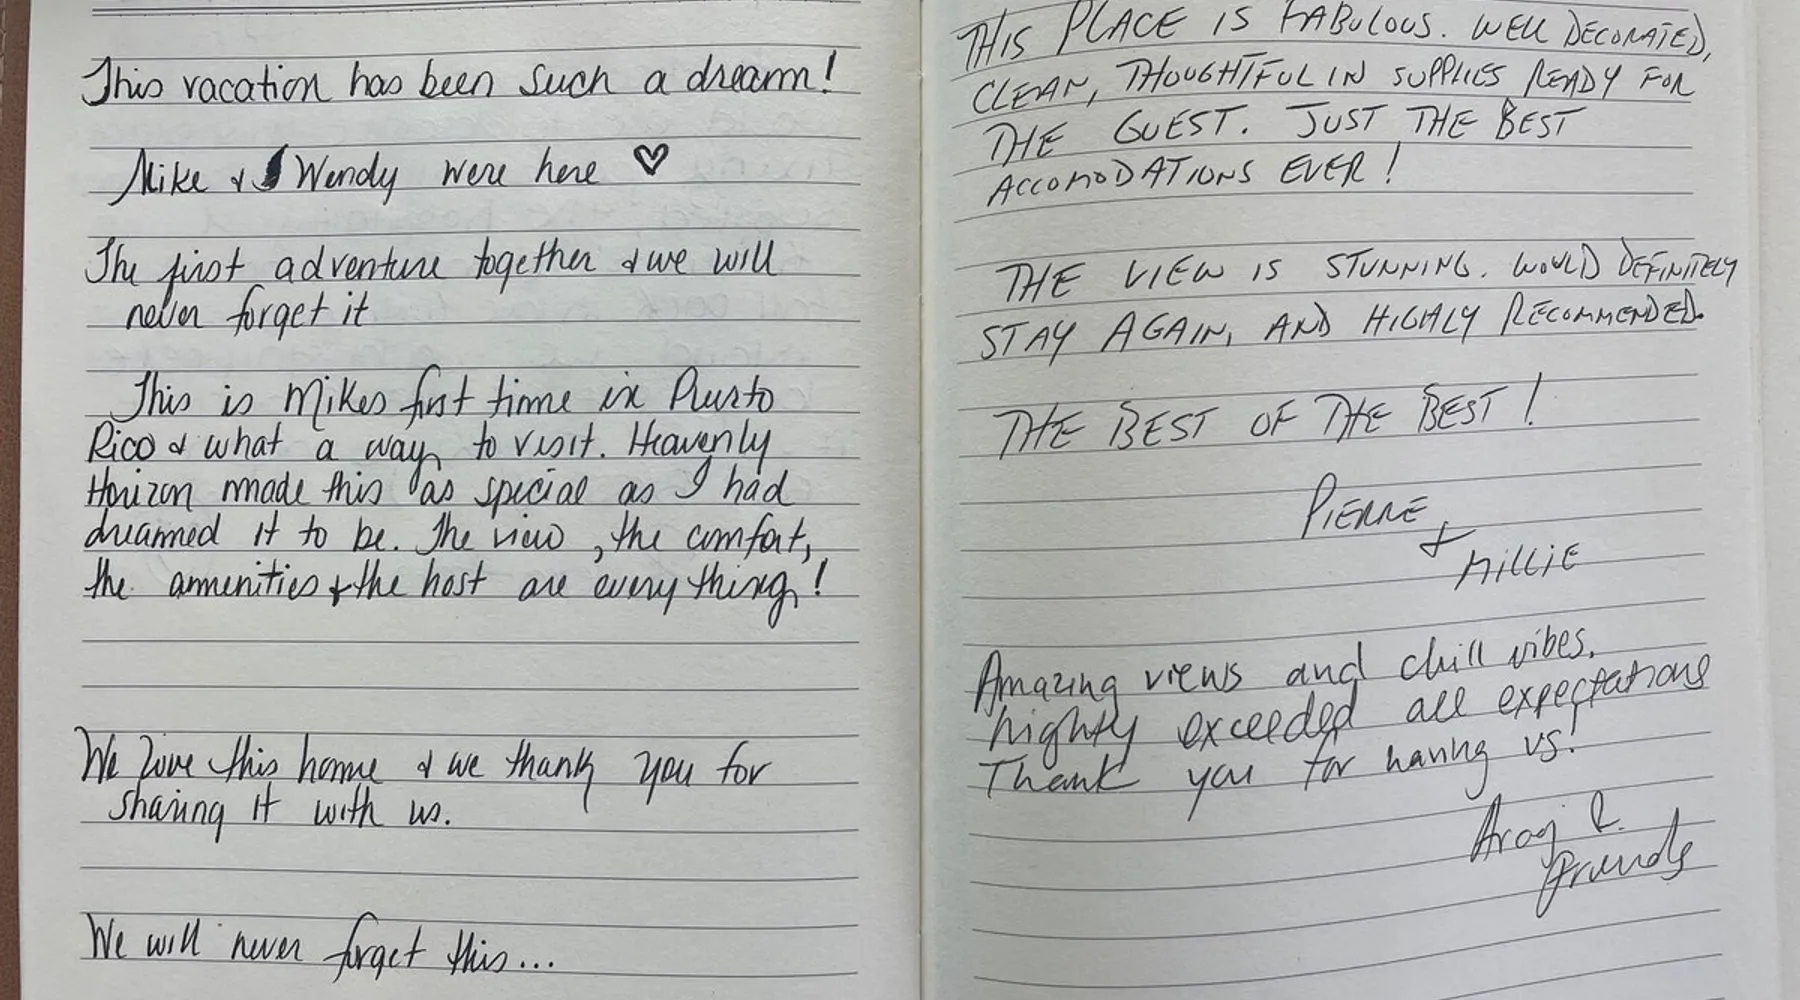 This vacation has been such a dream!
Mike & Wendy were here ♡
The first adventure together & we will
never forget it
This is Mikes first time in Puerto
Rico & what a way to visit. Heavenly
Horizon made this as special as I had
dreamed it to be. The view, the comfort,
the ammenities & the host are everything!
We love this home & we thank you for
sharing it with us.
We will never forget this...
THIS PLACE IS FABULOUS. WELL DECORATED,
CLEAN, THOUGHTFUL IN SUPPLIES READY FOR
THE GUEST. JUST THE BEST
ACCOMODATIONS EVER!
THE VIEW IS STUNNING. WOULD DEFINITELY
STAY AGAIN, AND HIGHLY RECOMMENDED.
THE BEST OF THE BEST!
PIERRE
+ MILLIE
Amazing views and chill vibes.
highly exceeded all expectations
Thank you for having us!